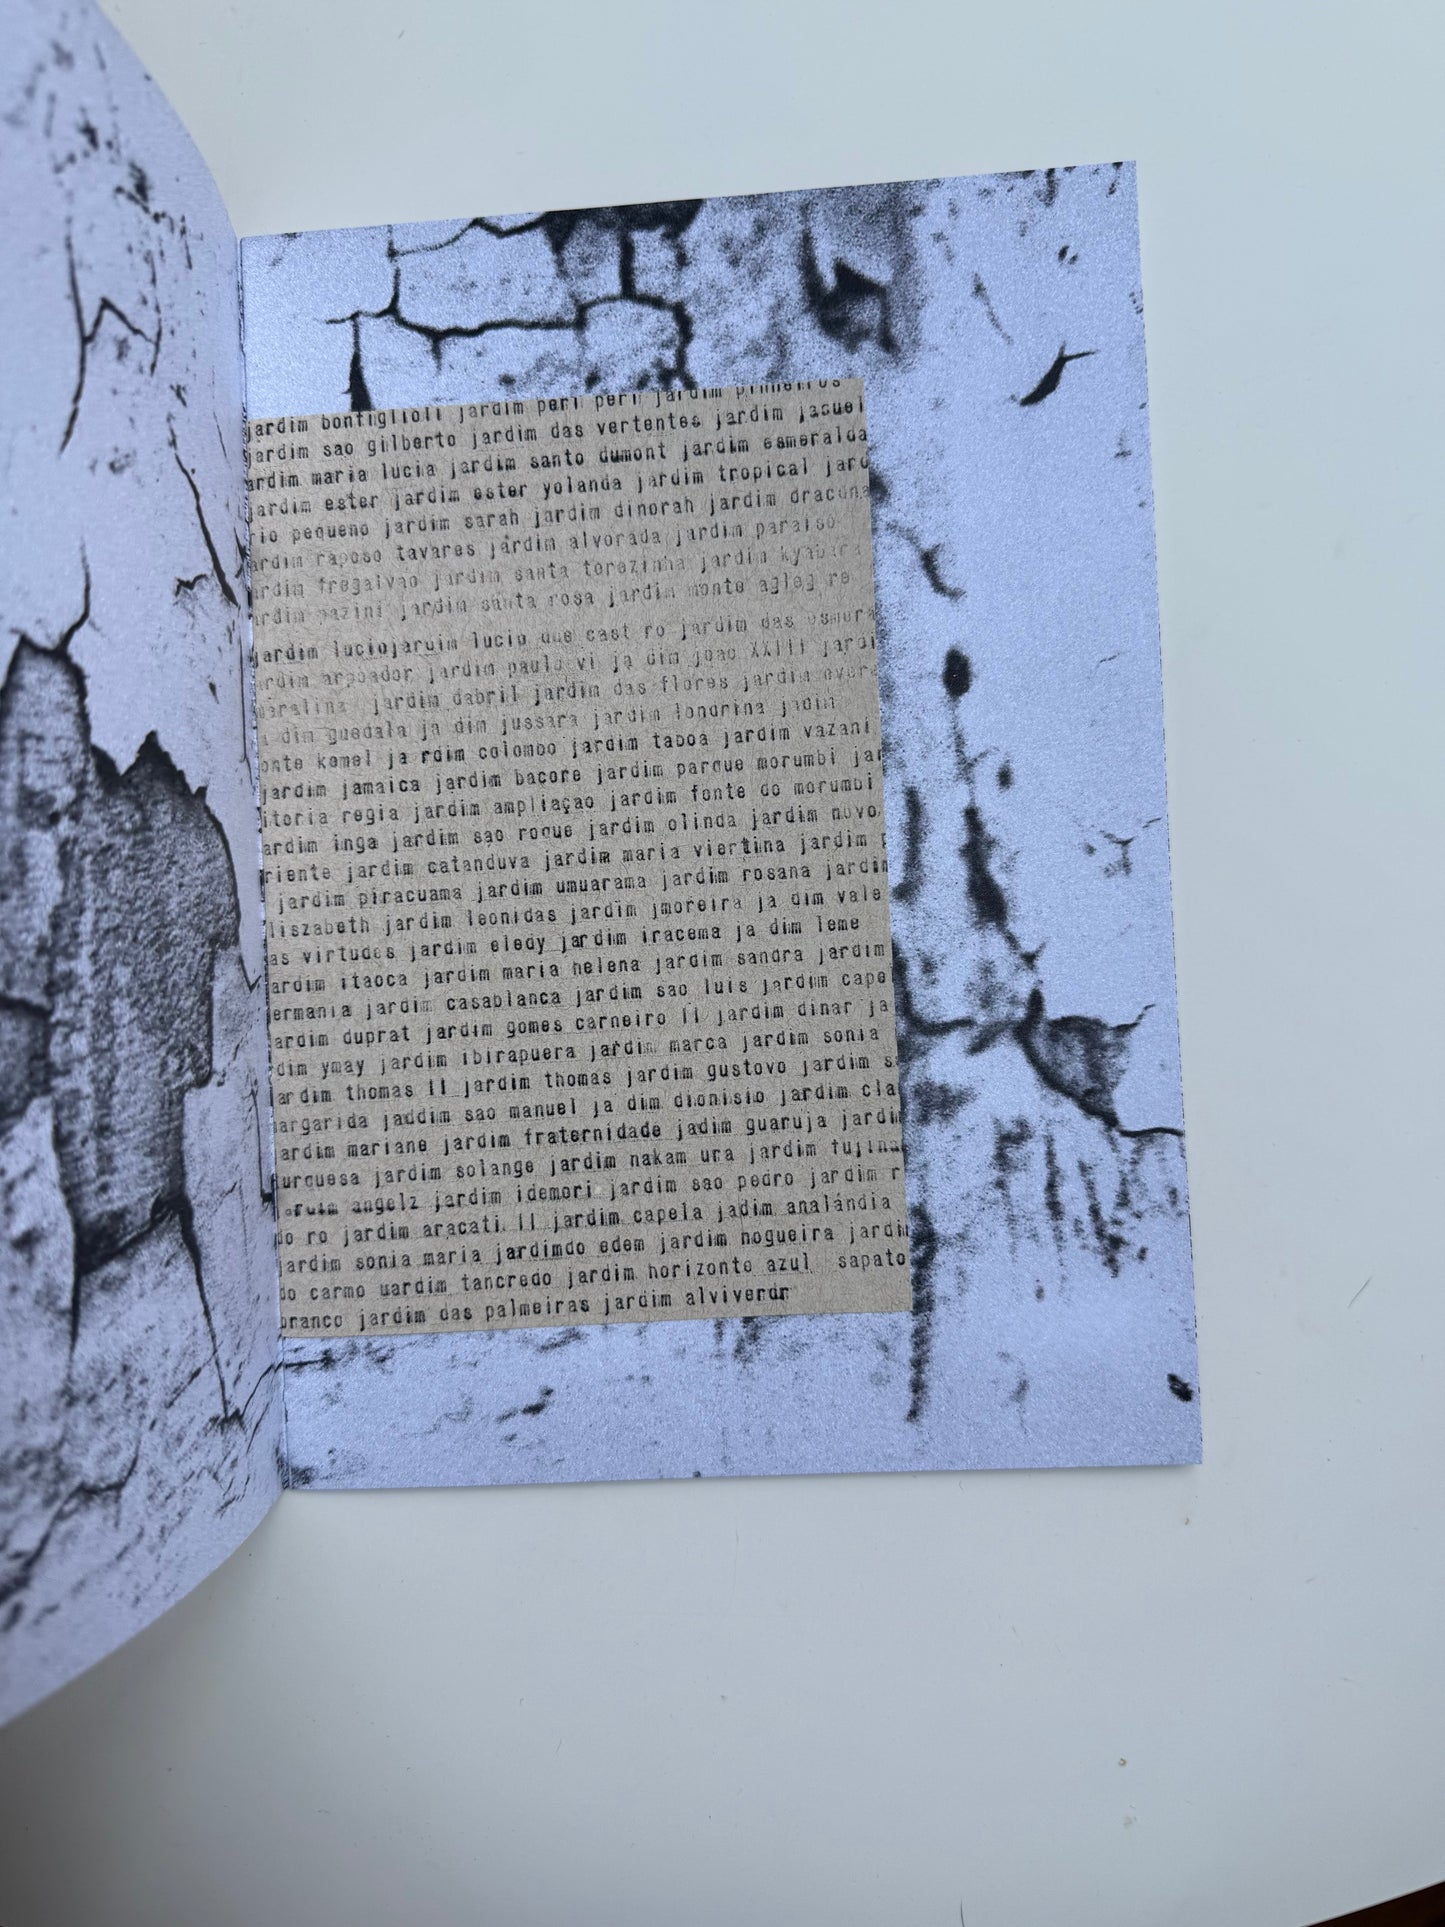 jardim bonfiglioli jardim peri peri jardim pinheiros
jardim sao gilberto jardim das vertentes jardim jaquel
ardim maria lucia jardim santo dumont jardim esmeralda
jardim ester jardim ester yolanda jardim tropical jard
rio pequeno jardim sarah jardim dinorah jardim dracena
ardim raposo tavares jardim alvorada jardim paraiso
ardim fregalvao jardim santa terezinha jardim kyabara
ardim pazini jardim santa rosa jardim monte agleg re
jardim luciojardim lucio due cast ro jardim das esmera
ardim arpoador jardim paulo vi ja dim joao XXIII jardi
maralina jardim dabril jardim das flores jardim evera
a dim guedala ja dim jussara jardim londrina jadim
onte kemel ja rdim colombo jardim taboa jardim vazani
jardim jamaica jardim bacore jardim parque morumbi jar
itoria regia jardim ampliaçao jardim fonte do morumbi
ardim inga jardim sao roque jardim olinda jardim novo
riente jardim catanduva jardim maria viertina jardim p
jardim piracuama jardim umuarama jardim rosana jardim
liszabeth jardim leonidas jardim jmoreira ja dim vale
as virtudes jardim eledy jardim iracema ja dim leme
ardim itaoca jardim maria helena jardim sandra jardim
ermania jardim casablanca jardim sao luis jardim cape
ardim duprat jardim gomes carneiro II jardim dinar ja
dim ymay jardim ibirapuera jardim marca jardim sonia
ardim thomas II jardim thomas jardim gustovo jardim s
argarida jaddim sao manuel ja dim dionisio jardim cla
ardim mariane jardim fraternidade jadim guaruja jardim
urquesa jardim solange jardim nakam ura jardim fujina
angelz jardim idemori jardim sao pedro jardim r
do ro jardim aracati II jardim capela jadim analándia
jardim sonia maria jardimdo edem jardim nogueira jardim
do carmo uardim tancredo jardim horizonte azul sapato
branco jardim das palmeiras jardim alviverdr